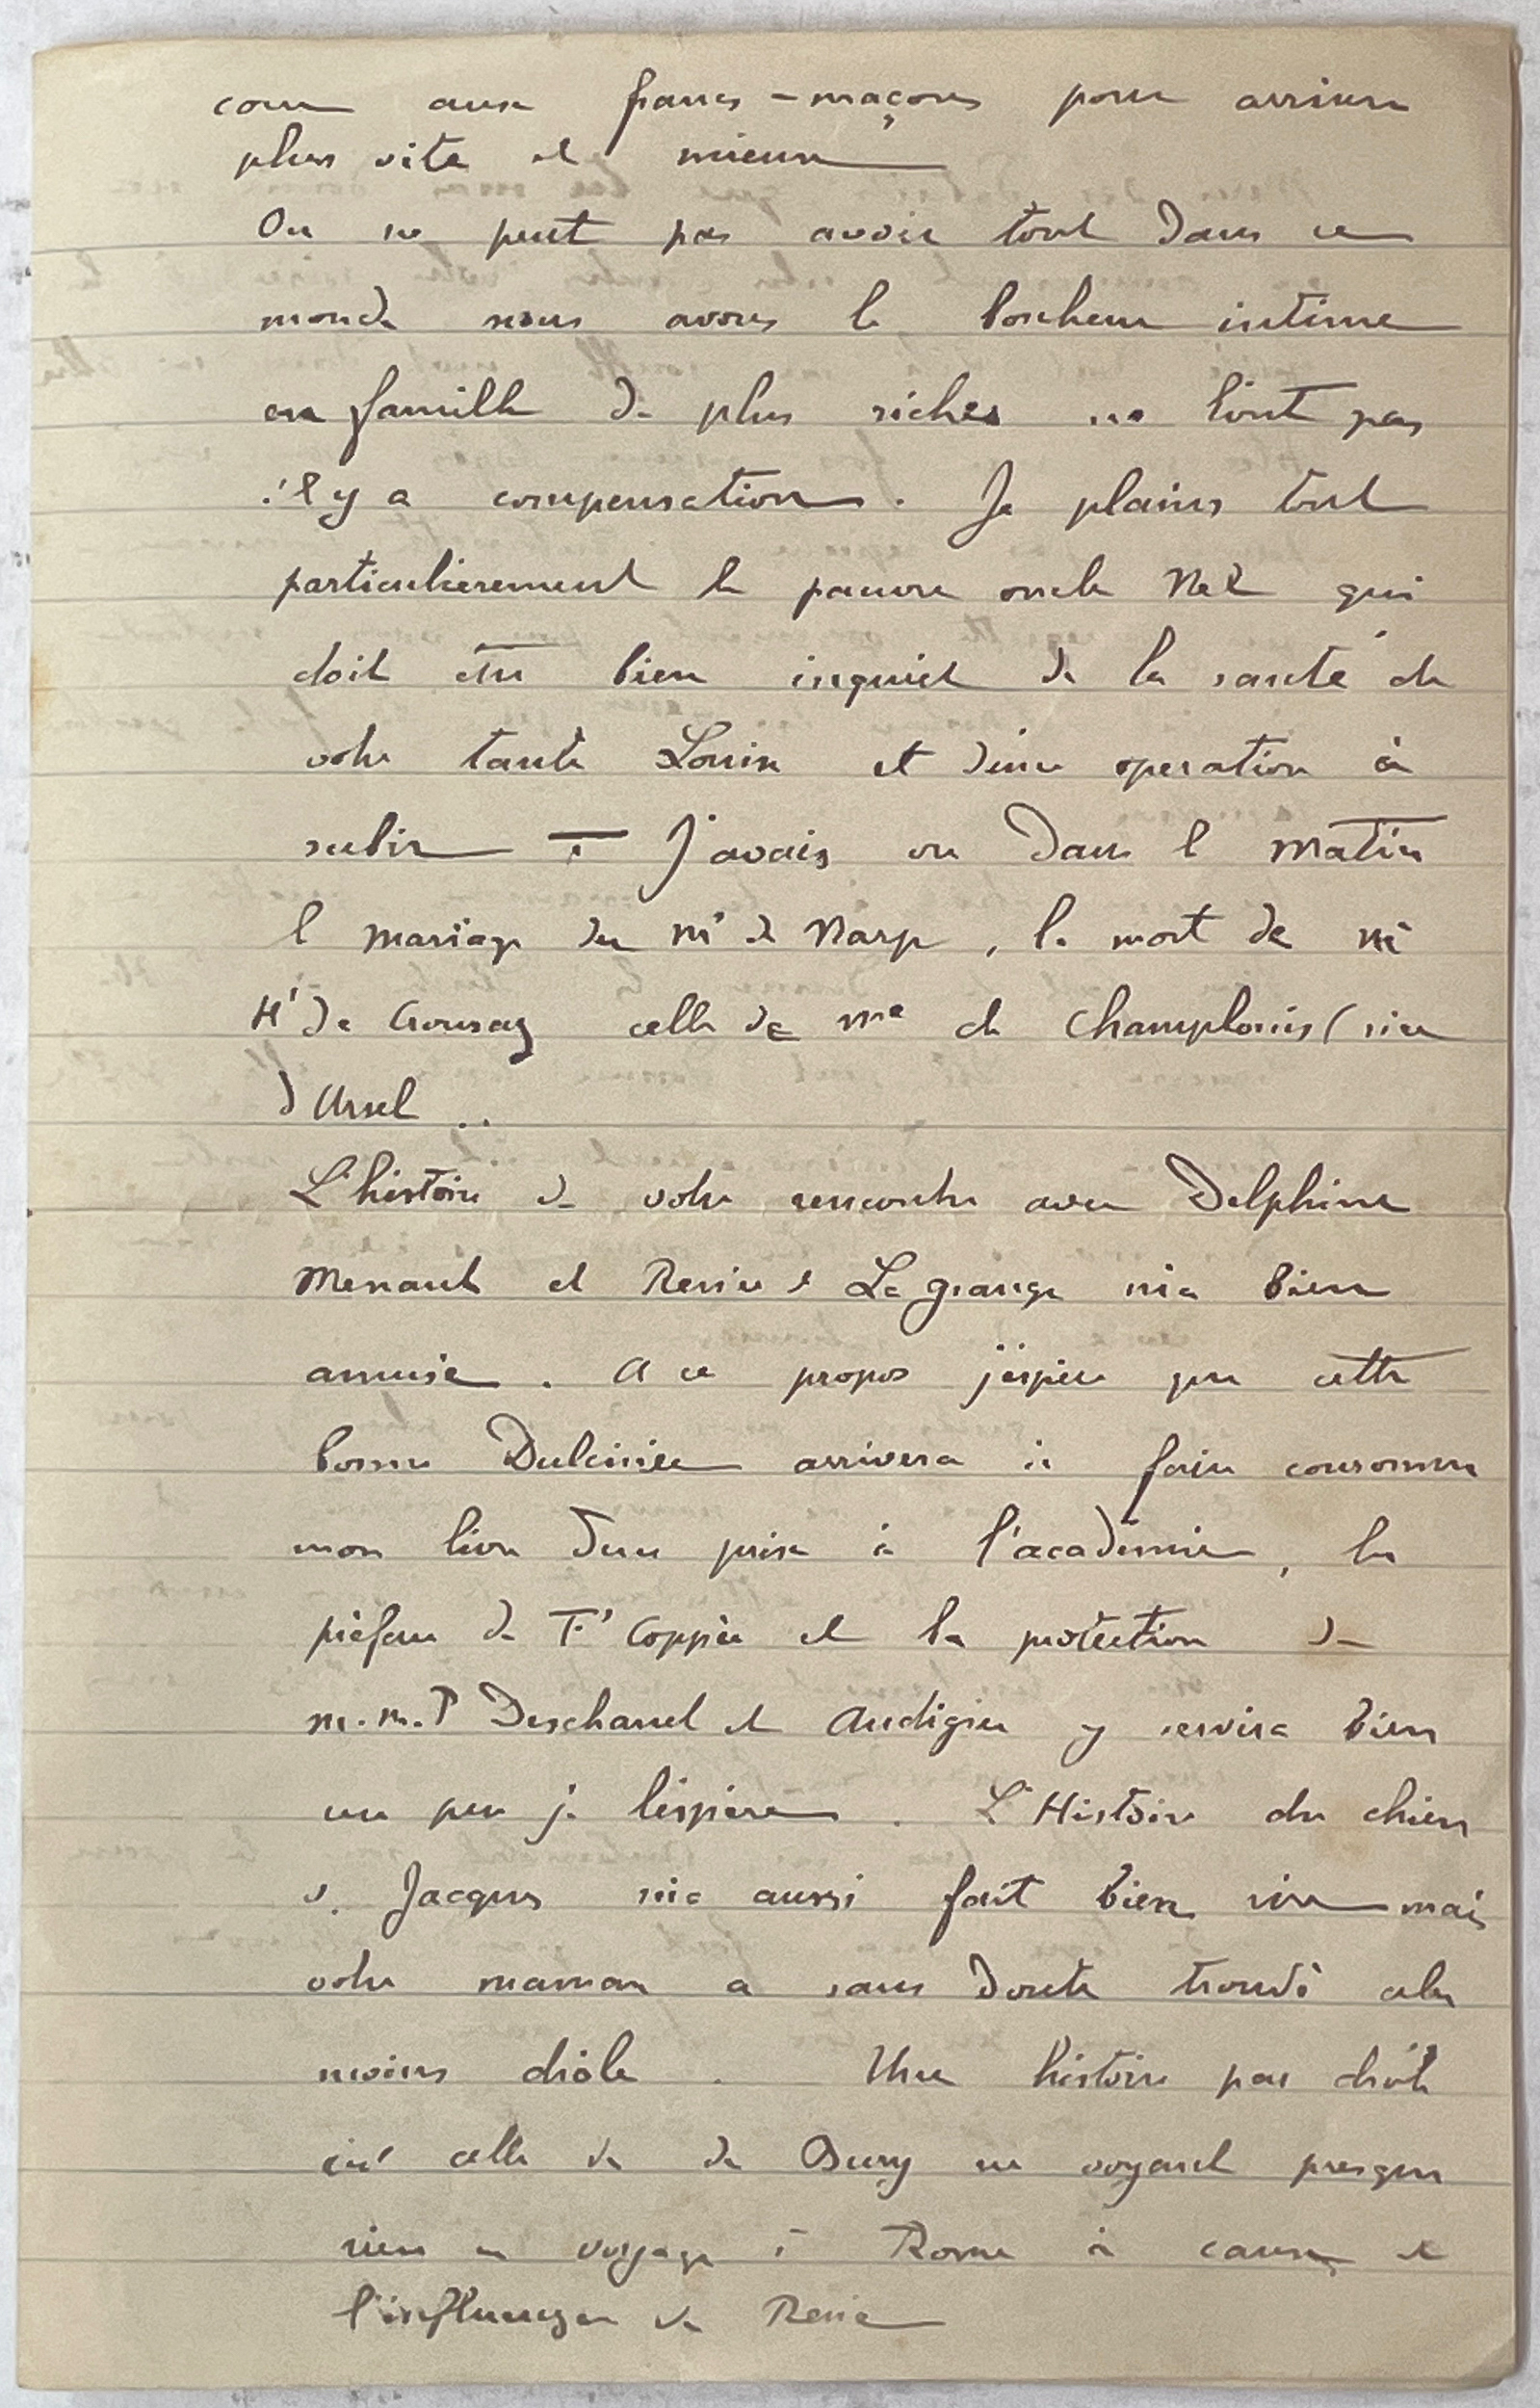 cour aux francs-maçons pour arriver
plus vite et mieux
On ne peut pas avoir tout dans ce
monde nous avons le bonheur intime
en famille de plus riches ne l'ont pas
il y a compensation. Je plains tout
particulierement le pauvre oncle qui
doit être bien inquiet de la santé de
votre tante Louise et d'une operation à
subir — J'avais vu dans le Matin
le mariage du de , la mort de
de celle de Me de Champlouis (née
d'Ursel ..
L'histoire de votre rencontre avec Delphine
Menant et Lagrange m'a bien
amusé. A ce propos j'espère que cette
bonne Dulcinée arrivera à faire couronner
mon livre d'un prix à l'académie, la
préface de F' Coppée et la protection de
m.m. P Deschanel et Audigier y servira bien
un peu je l'espère. L'Histoire du chien
de Jacques m'a aussi fait bien rire mais
votre maman a sans doute trouvé cela
moins drôle. Une histoire pas drôle
c'est celle de de Bury ne voyant presque
rien en voyage à Rome à cause de
l'influenza de